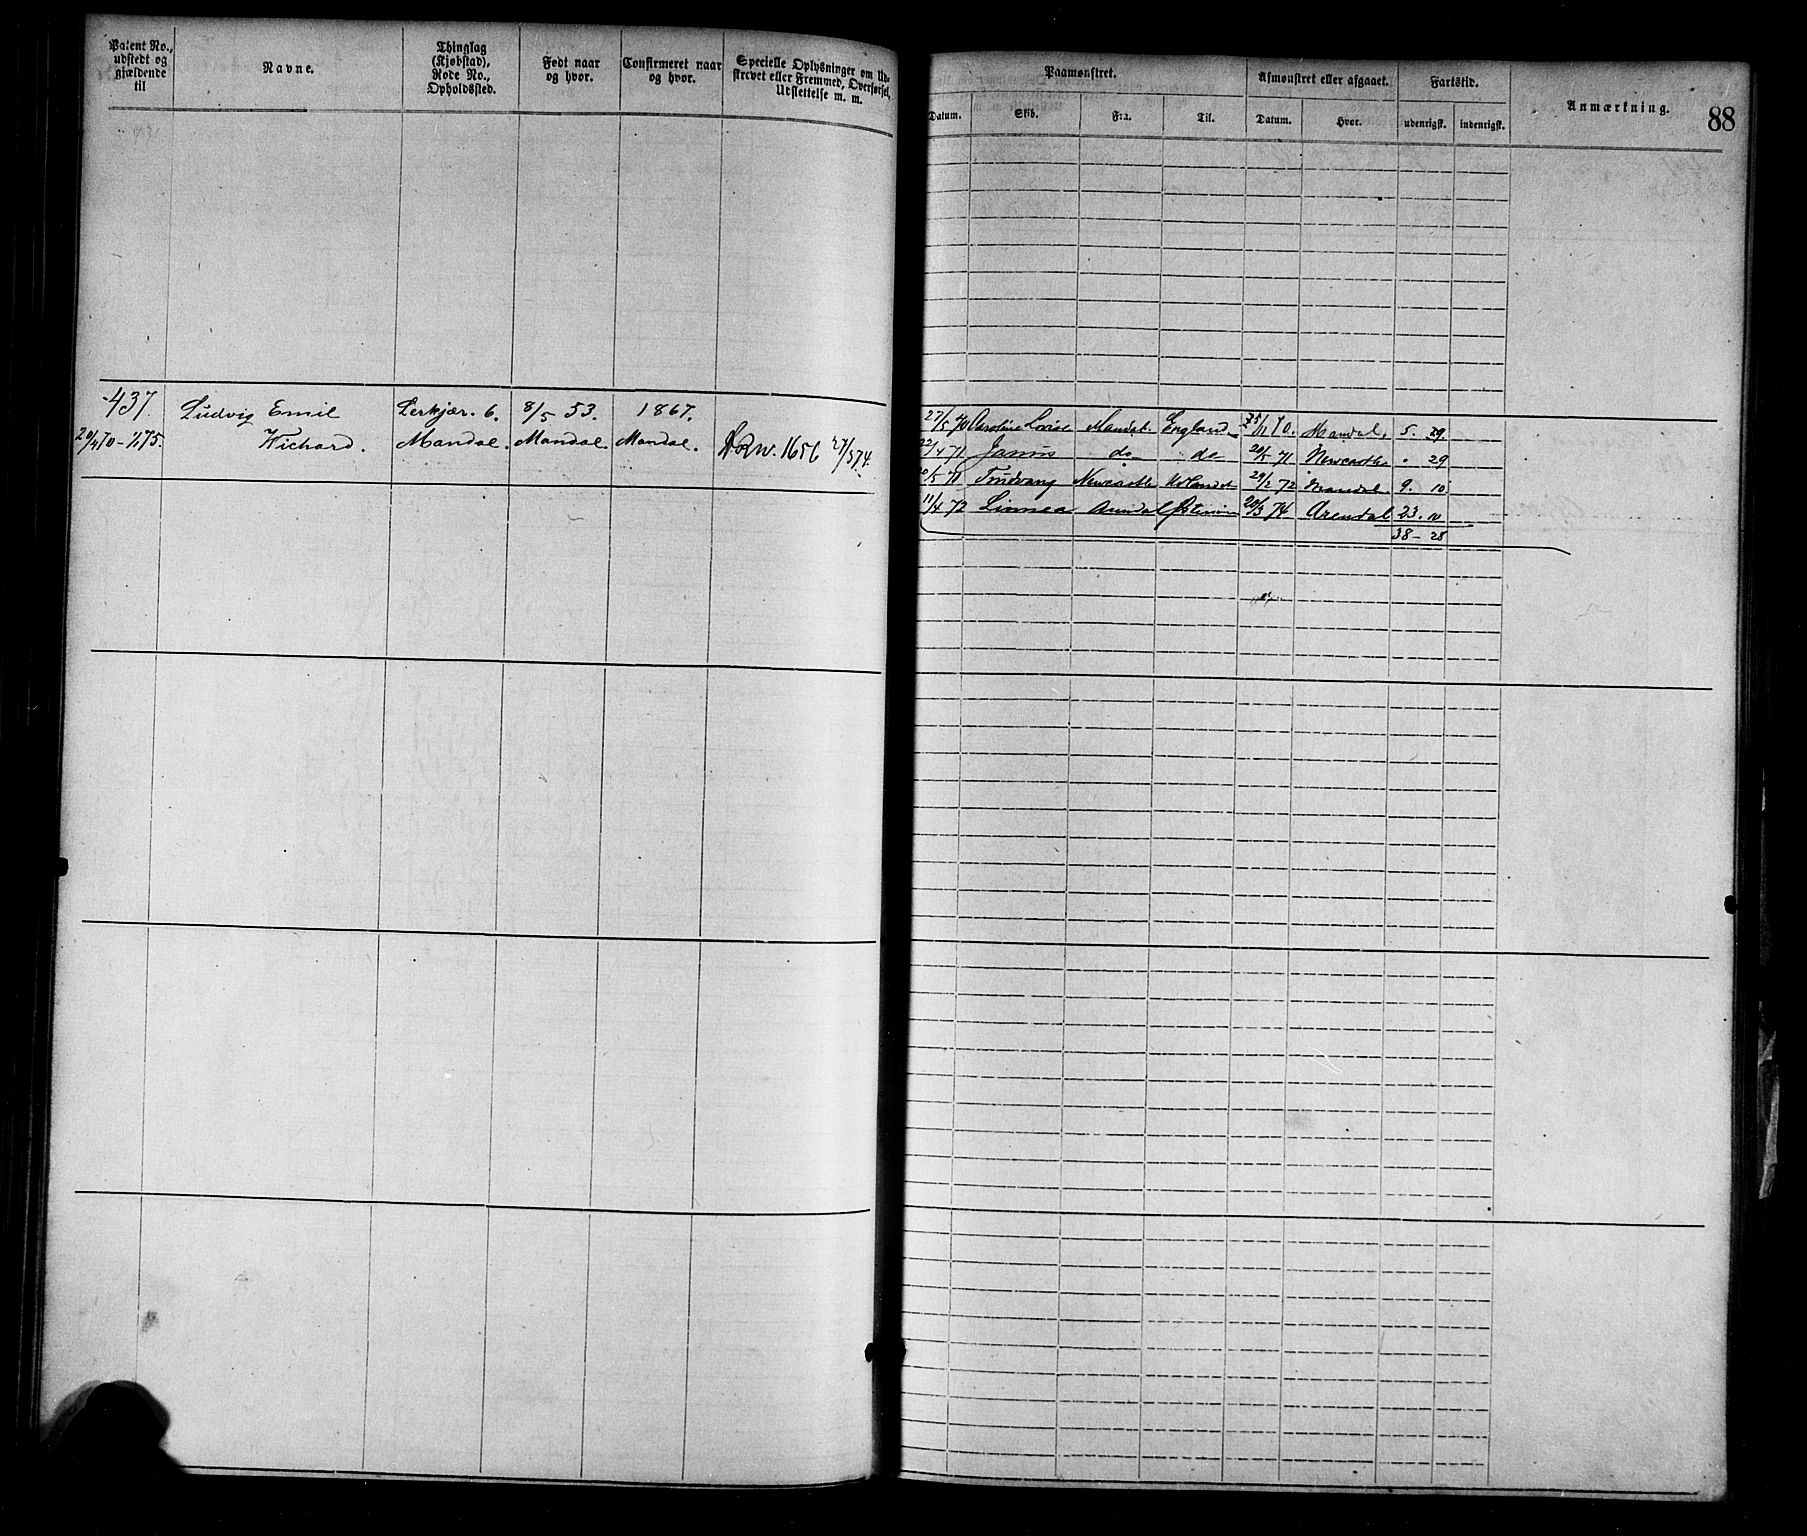 Patent No., udstedt og gjældende til
Navne.
Thinglag (Kjøbstad), Rode No., Opholdssted.
Født naar og hvor.
Confirmeret naar og hvor.
Specielle Oplysninger om Ud-
skrevet eller Fremmed, Overførsel,
Udslettelse m. m.
Paamønstret.
Afmønstret eller afgaaet.
Fartstid.
Anmærkning.
88
Datum. Skib. Fra. Til. Datum. Hvor. udenrigsk. indenrigsk.
437 Ludvig Emil Lerkjær. 6. 8/5 53. 1867.
20/4 70 - 1/1 75. Wichard. Mandal. Mandal. Mandal. 1656 27/5 74.
27/5 70 Caroline Lovise Mandal England 25/11 70. Mandal. 5. 29.
22/4 71 Janus do do 20/5 71 Newcastle " 29
20/5 71 Newcastle 29/2 72 Mandal. 9. 10
11/4 72 Linnea Arendal 20/3 74 Arendal 23. 10
38 - 28